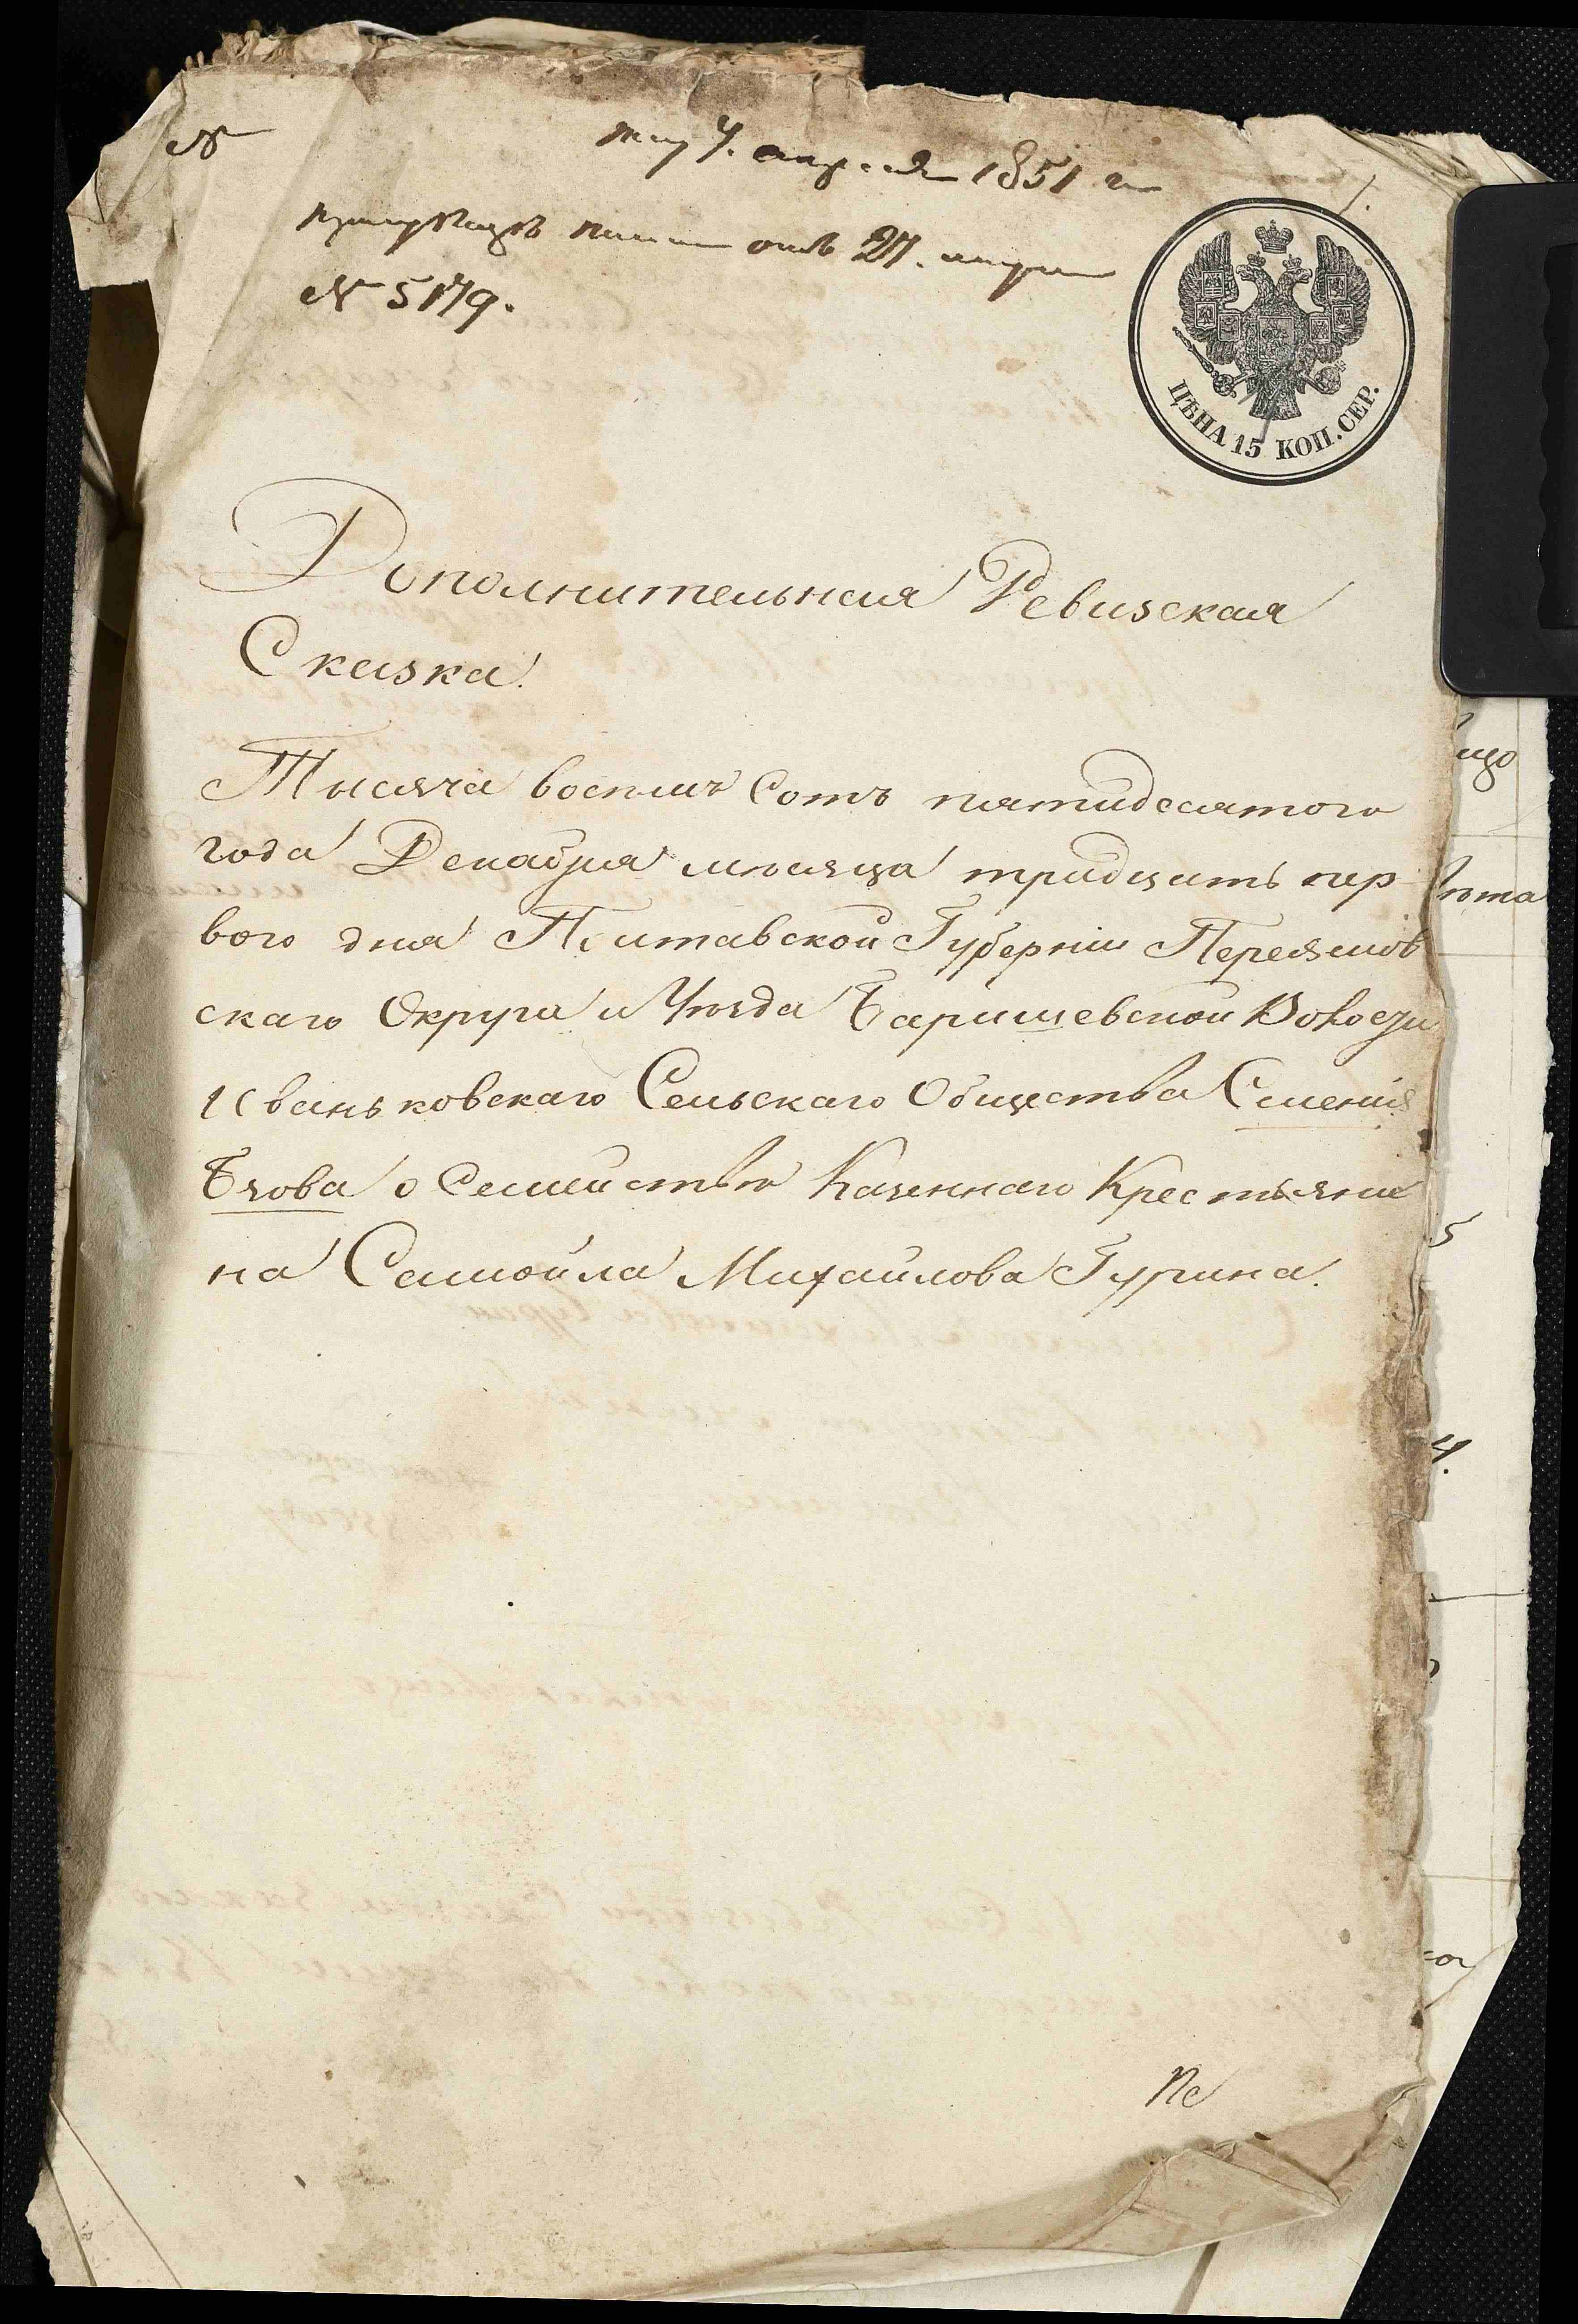 №
7. апреля 1851 г
при указѣ палаты отъ 27. марта
№ 5179.
ЦѢНА 15 КОП. СЕР.
Дополнительная Ревизская
Сказка.
Тысяча восемь сотъ пятидесятого
года Декабря мѣсяца тридцать пер
вого дня Полтавской Губерніи Переяслов
скаго Округа и Уѣзда Баришевской Волости
Иваньковскаго Сельскаго Общества Селенія
о Семействѣ Казеннаго Крестьяни
на Самойла Михайлова Гурина.